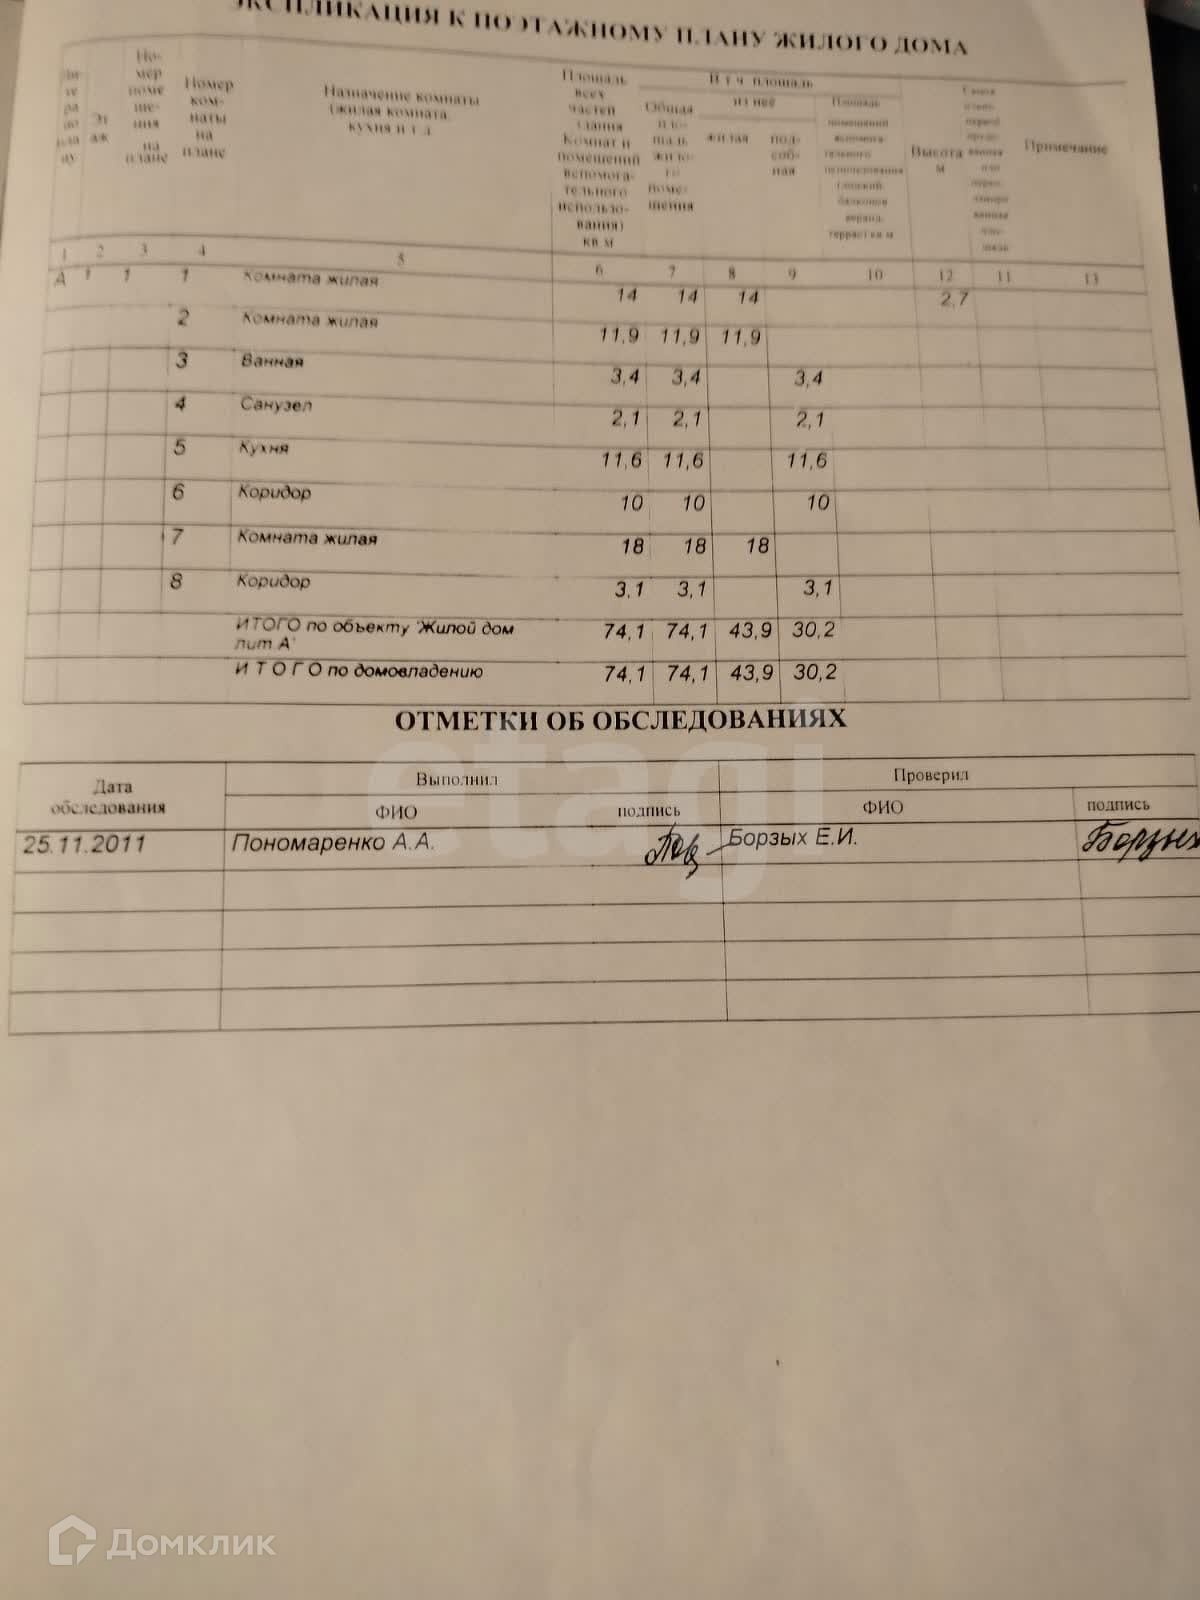 ЭКСПЛИКАЦИЯ К ПОЭТАЖНОМУ ПЛАНУ ЖИЛОГО ДОМА
Эт аж
Но- мер поме ще- ния на плане
Номер ком- наты на плане
Назначение комнаты (жилая комната, кухня и т.д.
Площадь всех частей здания Комнат и помещений вспомога- тельного использо- вания) кв м
В т ч площадь
Общая пло- щадь жило- го поме- щения
из неё
жилая
под- соб- ная
Площадь помещений вспомога- тельного использования
террас) кв м
Высота м
Примечание
1 2 3 4 5 6 7 8 9 10 12 11 13
А 1 1 1 Комната жилая 14 14 14 2,7
2 Комната жилая 11,9 11,9 11,9
3 Ванная 3,4 3,4 3,4
4 Санузел 2,1 2,1 2,1
5 Кухня 11,6 11,6 11,6
6 Коридор 10 10 10
7 Комната жилая 18 18 18
8 Коридор 3,1 3,1 3,1
ИТОГО по объекту 'Жилой дом лит А' 74,1 74,1 43,9 30,2
И Т О Г О по домовладению 74,1 74,1 43,9 30,2
ОТМЕТКИ ОБ ОБСЛЕДОВАНИЯХ
Дата обследования
Выполнил
Проверил
ФИО подпись ФИО подпись
25.11.2011 Пономаренко А.А. Борзых Е.И. Борзых
etagi
Домклик